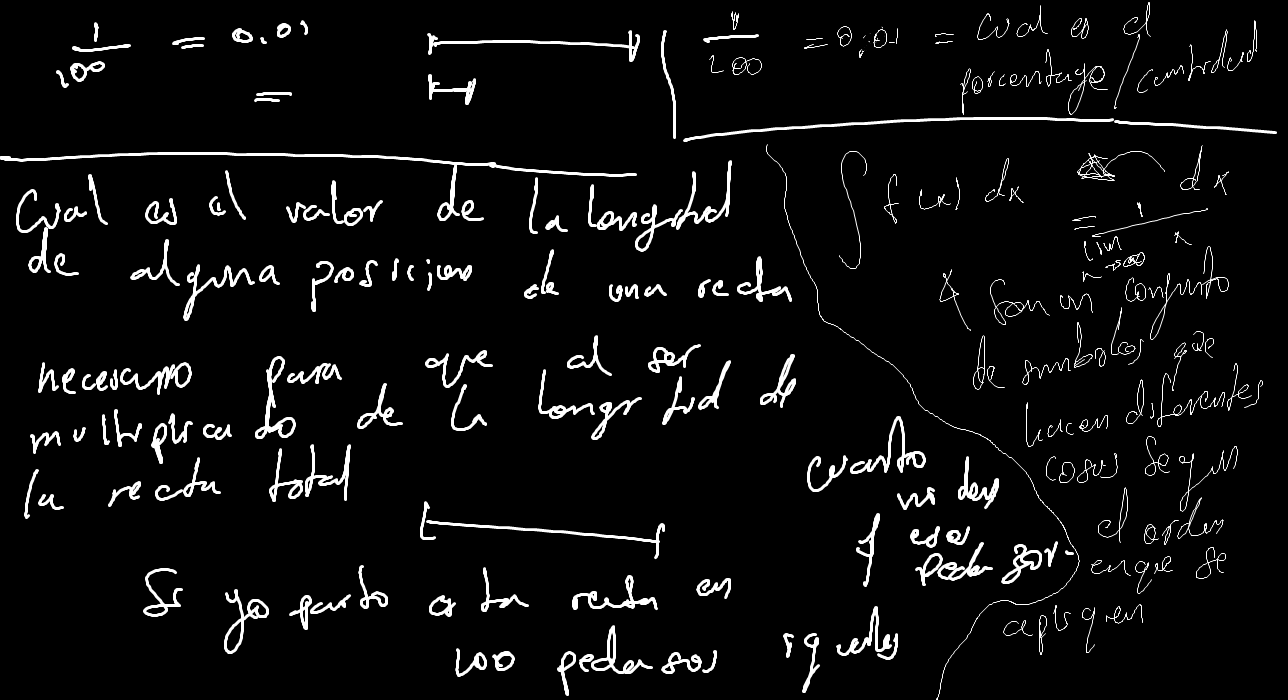 1/100 = 0.01
=
1/100 = 0.01 = Cual es el
porcentage / cantidad
Cual es el valor de la longitud
de alguna posicion de una recta
necesario para que al ser
multiplicado de la longitud de
la recta total
Si yo parto esta recta en
100 pedasos iguales
Cuanto
miden
y esos
pedasos
∫ f(x) dx
dx
= 1/x
lim
n→∞
Son un conjunto
de simbolos que
hacen diferentes
cosas segun
el orden
en que se
apliquen